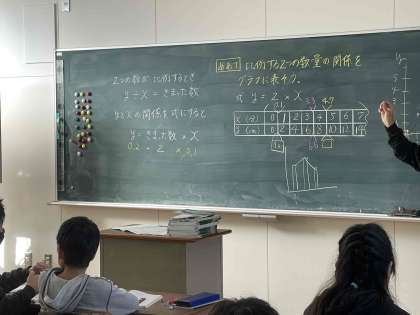 2つの数が比例するとき
y÷x=きまった数
yとxの関係を式にすると
y=きまった数×x
0.2 = 2 × 0.1
めあて 比例する2つの数量の関係を
グラフに表そう。
y=2×x
x(分) 0 1 2 3 4 5 6 7
y(cm) 0 2 4 6 8 10 12 14